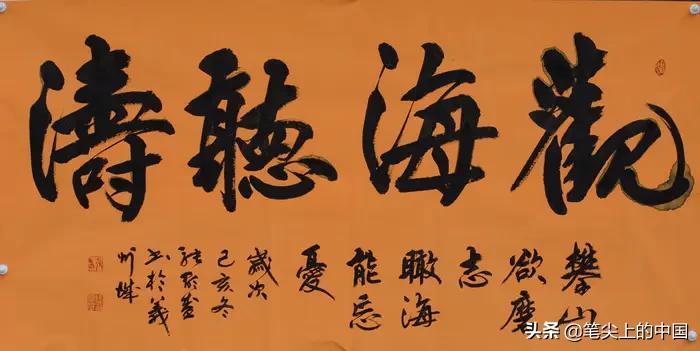 觀海聽濤
攀山
欲磨
志
瞰海
能忘
憂
歲次
己亥冬
書於義
州城
头条 @笔尖上的中国